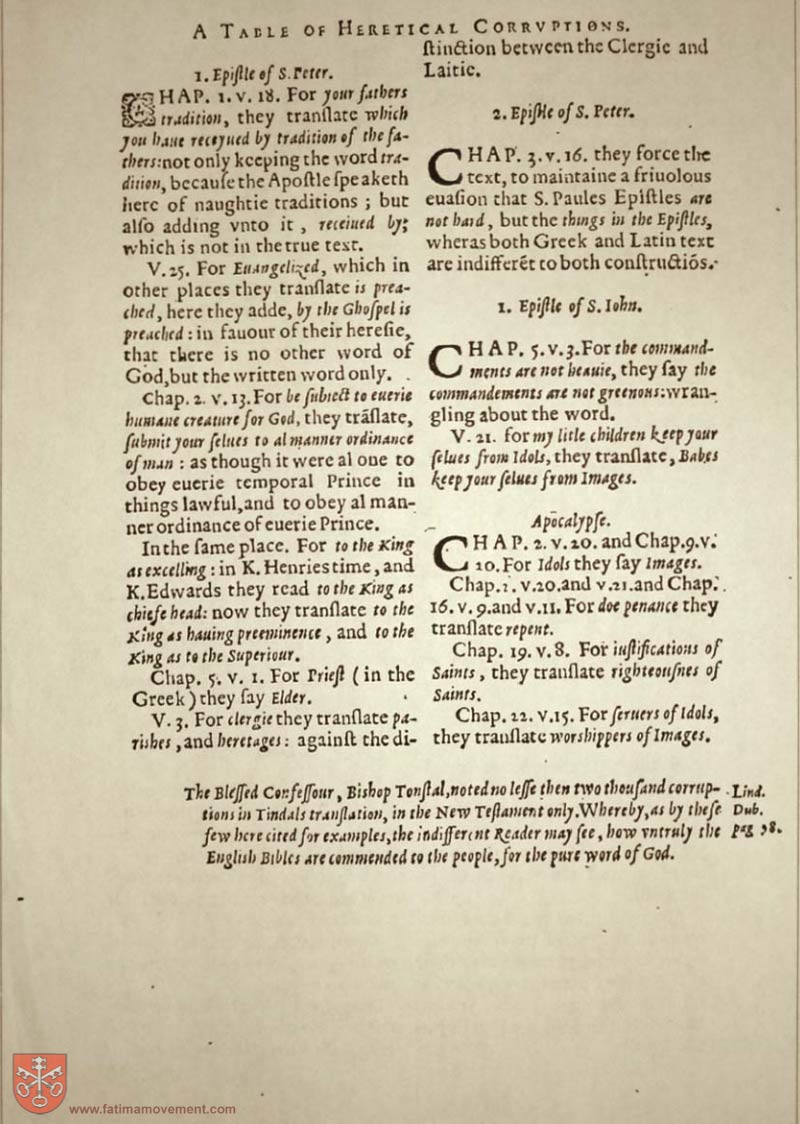 A TABLE OF HERETICAL CORRVPTIONS.
1. Epiſtle of S. Peter.
CHAP. 1. v. 18. For your fathers
tradition, they tranſlate which
you haue receyued by tradition of the fa-
thers: not only keeping the word tra-
dition, becauſe the Apoſtle ſpeaketh
here of naughtie traditions; but
alſo adding vnto it, receiued by;
which is not in the true text.
V. 25. For Euangelized, which in
other places they tranſlate is prea-
ched, here they adde, by the Ghoſpel is
preached: in fauour of their hereſie,
that there is no other word of
God, but the written word only.
Chap. 2. v. 13. For be ſubiect to euerie
humane creature for God, they trāſlate,
ſubmit your ſelues to al manner ordinance
of man: as though it were al one to
obey euerie temporal Prince in
things lawful, and to obey al man-
ner ordinance of euerie Prince.
In the ſame place. For to the King
as excelling: in K. Henries time, and
K. Edwards they read to the King as
chiefe head: now they tranſlate to the
King as hauing preeminence, and to the
King as to the Superiour.
Chap. 5. v. 1. For Prieſt (in the
Greek) they ſay Elder.
V. 3. For clergie they tranſlate pa-
riſhes, and heretages: againſt the di-
ſtinction between the Clergie and
Laitie.
2. Epiſtle of S. Peter.
CHAP. 3. v. 16. they force the
text, to maintaine a friuolous
euaſion that S. Paules Epiſtles are
not hard, but the things in the Epiſtles,
wheras both Greek and Latin text
are indifferēt to both conſtructiōs.
1. Epiſtle of S. Iohn.
CHAP. 5. v. 3. For the command-
ments are not heauie, they ſay the
commandements are not greeuous: wran-
gling about the word.
V. 21. for my litle children keep your
ſelues from Idols, they tranſlate, Babes
keep your ſelues from Images.
Apocalypſe.
CHAP. 2. v. 20. and Chap. 9. v.
20. For Idols they ſay Images.
Chap. 2. v. 20. and v. 21. and Chap.
16. v. 9. and v. 11. For doe penance they
tranſlate repent.
Chap. 19. v. 8. For iuſtifications of
Saints, they tranſlate righteouſnes of
Saints.
Chap. 22. v. 15. For ſeruers of Idols,
they tranſlate worſhippers of Images.
The Bleſſed Confeſſour, Biſhop Tonſtal, noted no leſſe then two thouſand corrup-
tions in Tindals tranſlation, in the New Teſtament only. Whereby, as by theſe
few here cited for examples, the indifferent Reader may ſee, how vntruly the
Engliſh Bibles are commended to the people, for the pure word of God.
Lind.
Dub.
pag 98.
www.fatimamovement.com